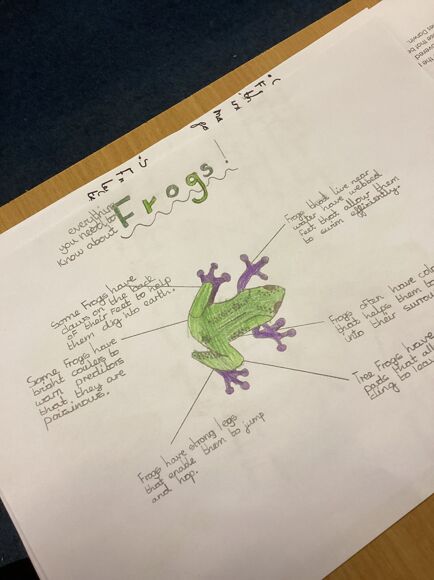 everything
you need to
know about
Frogs!
Frogs that live near
water have webbed
feet that allow them
to swim efficiently.
Some Frogs have
claws on the back
of their feet to help
them dig into earth.
Frogs often have colo
that helps them to
into their surrou
Some Frogs have
bright coulers to
warn preditors
that they are
poisinous.
Tree Frogs have
pads that all
cling to lea
Frogs have strong legs
that enable them to jump
and hop.